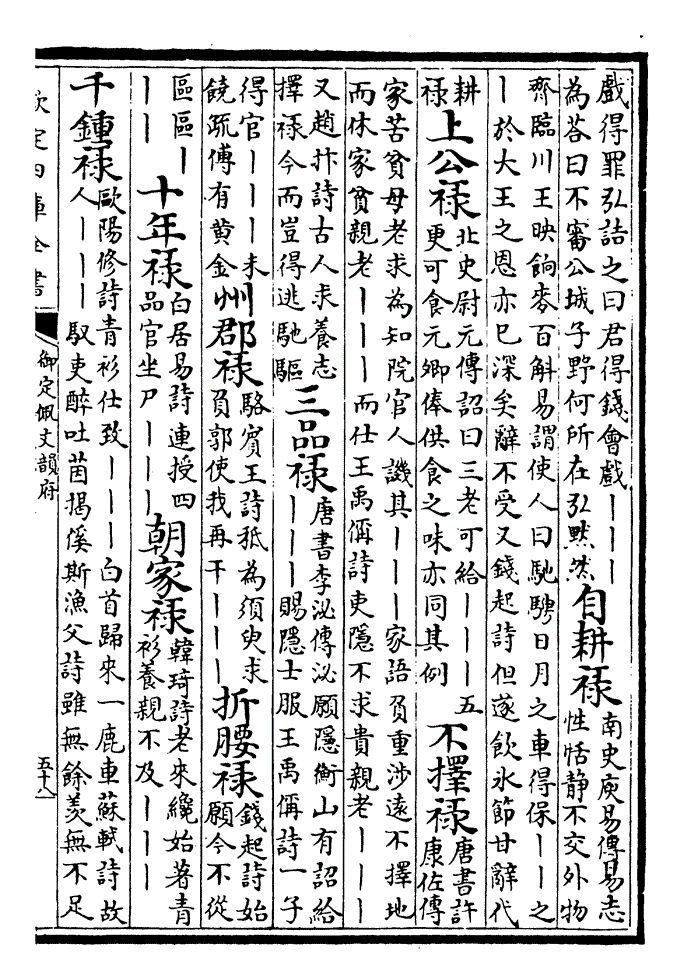 戲得罪弘詰之曰君得錢會戲丨丨丨
為荅曰不審公城子野何所在弘黙然
自耕禄
南史庾易傳易志
性恬靜不交外物
齊臨川王映餉麥百斛易謂使人曰馳騁日月之車得保丨丨之
丨於大王之恩亦已深矣辭不受又錢起詩但遂飲氷節甘辭代
耕
禄
上公禄
北史尉元傳詔曰三老可給丨丨丨五
更可食元卿俸供食之味亦同其例
不擇禄
唐書許
康佐傳
家苦貧母老求為知院官人譏其丨丨丨家語負重涉遠不擇地
而休家貧親老丨丨丨而仕王禹偁詩吏隱不求貴親老丨丨丨
又趙抃詩古人求養志
擇禄今而豈得逃馳驅
三品禄
唐書李泌傳泌願隱衡山有詔給
丨丨丨賜隱士服王禹偁詩一子
得官丨丨丨未
饒疏傅有黄金
州郡禄
駱賓王詩秖為須臾求
負郭使我再干丨丨丨
折腰禄
錢起詩始
願今不從
區區丨
丨丨
十年禄
白居易詩連授四
品官坐尸丨丨丨
朝家禄
韓琦詩老來纔始著青
衫養親不及丨丨丨
千鍾禄
歐陽修詩青衫仕致丨丨丨白首歸來一鹿車蘇軾詩故
人丨丨丨馭吏醉吐茵揭傒斯漁父詩雖無餘羡無不足
欽定四庫全書
御定佩文韻府
五十八